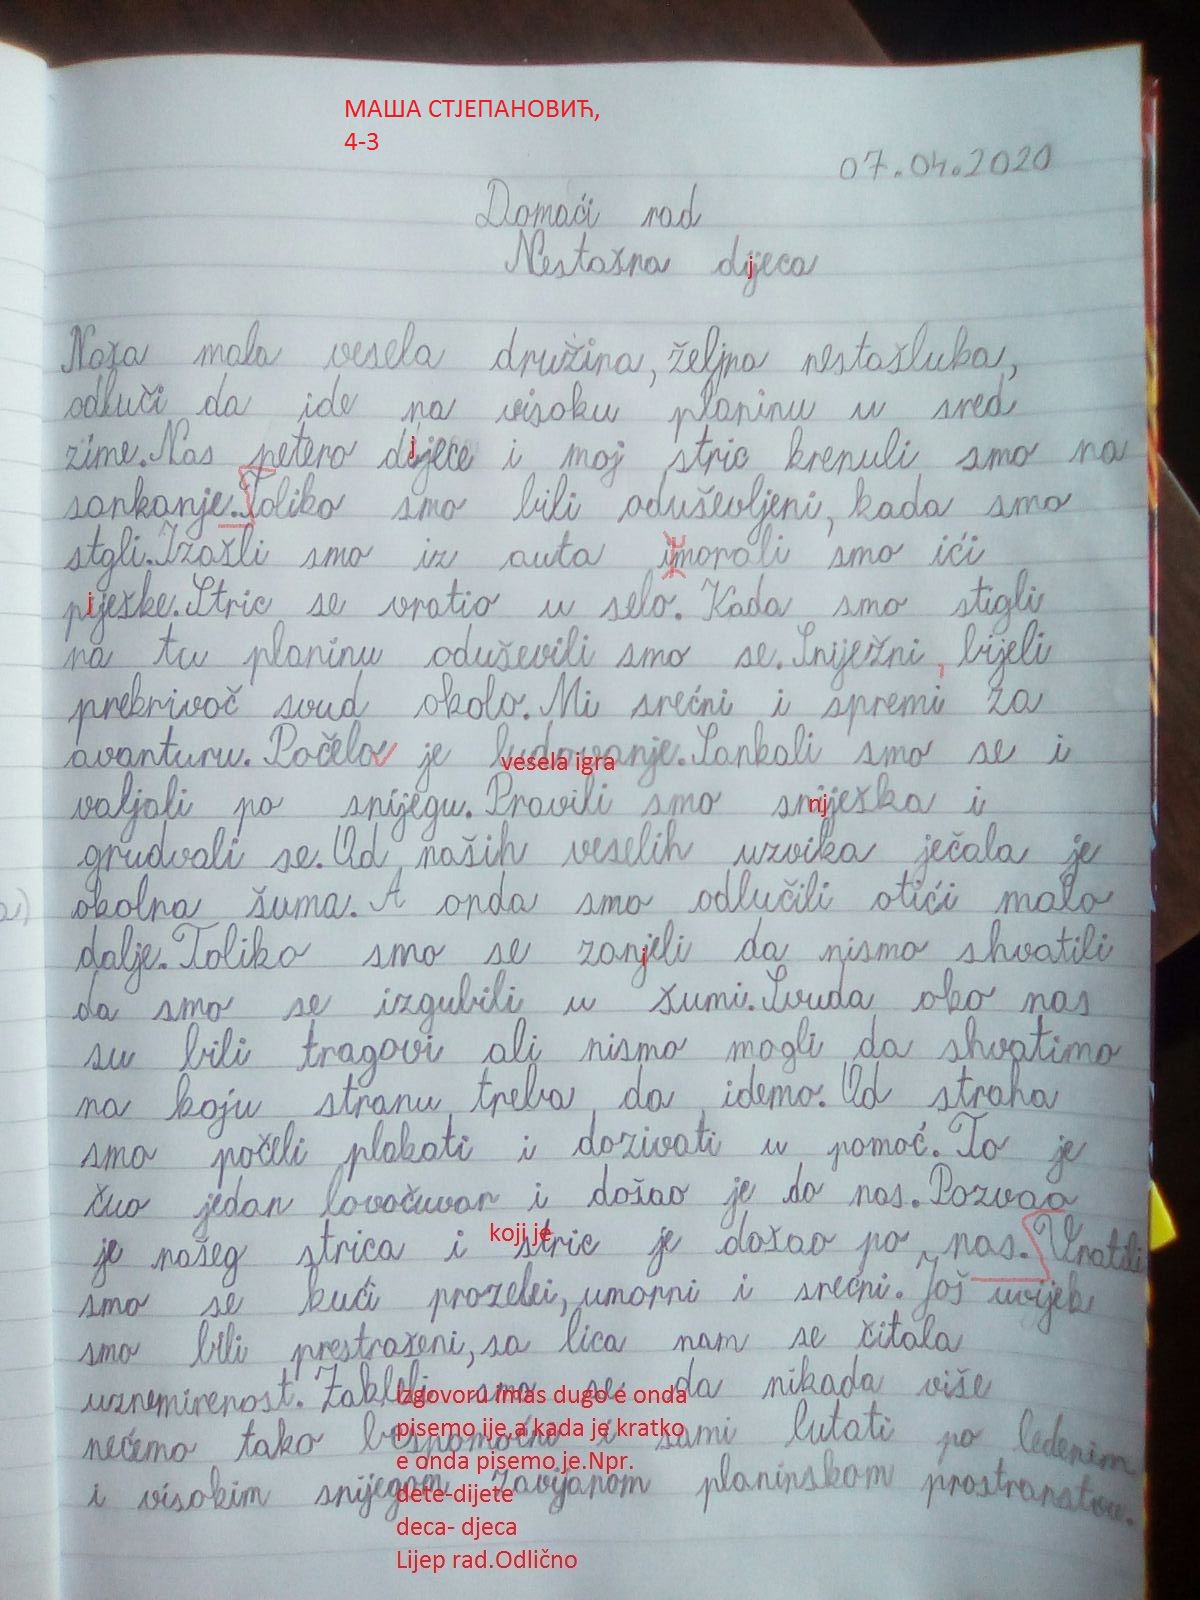 МАША СТЈЕПАНОВИЋ,
4-3
07.04.2020
Domaći rad
Nestašna dijeca
j
Naša mala vesela družina, željna nestašluka,
odluči da ide na visoku planinu u sred
zime. Nas petero dijece i moj stric krenuli smo na
j
sankanje. Toliko smo bili oduševljeni, kada smo
stgli. Izašli smo iz auta i morali smo ići
pješke. Stric se vratio u selo. Kada smo stigli
j
na tu planinu oduševili smo se. Sniježni, bijeli
prekrivač svud okolo. Mi srećni i spremi za
avanturu. Počelo je ludovanje. Sankali smo se i
vesela igra
valjali po snijegu. Pravili smo sniješka i
nj
grudvali se. Od naših veselih uzvika ječala je
okolna šuma. A onda smo odlučili otići malo
dalje. Toliko smo se zanjeli da nismo shvatili
j
da smo se izgubili u šumi. Svuda oko nas
su bili tragovi ali nismo mogli da shvatimo
na koju stranu treba da idemo. Od straha
smo počeli plakati i dozivati u pomoć. To je
čuo jedan lovočuvar i došao je do nas. Pozvao
je našeg strica i stric je došao po nas. Vratili
koji je
smo se kući prozebli, umorni i srećni. Još uvijek
smo bili prestrašeni, sa lica nam se čitala
uznemirenost. Zakleli smo se da nikada više
nećemo tako bespomoćno i sami lutati po ledenim
i visokim snijegom zavijanom planinskom prostranstvu.
Izgovoru imas dugo e onda
pisemo ije,a kada je kratko
e onda pisemo je.Npr.
dete-dijete
deca- djeca
Lijep rad.Odlično